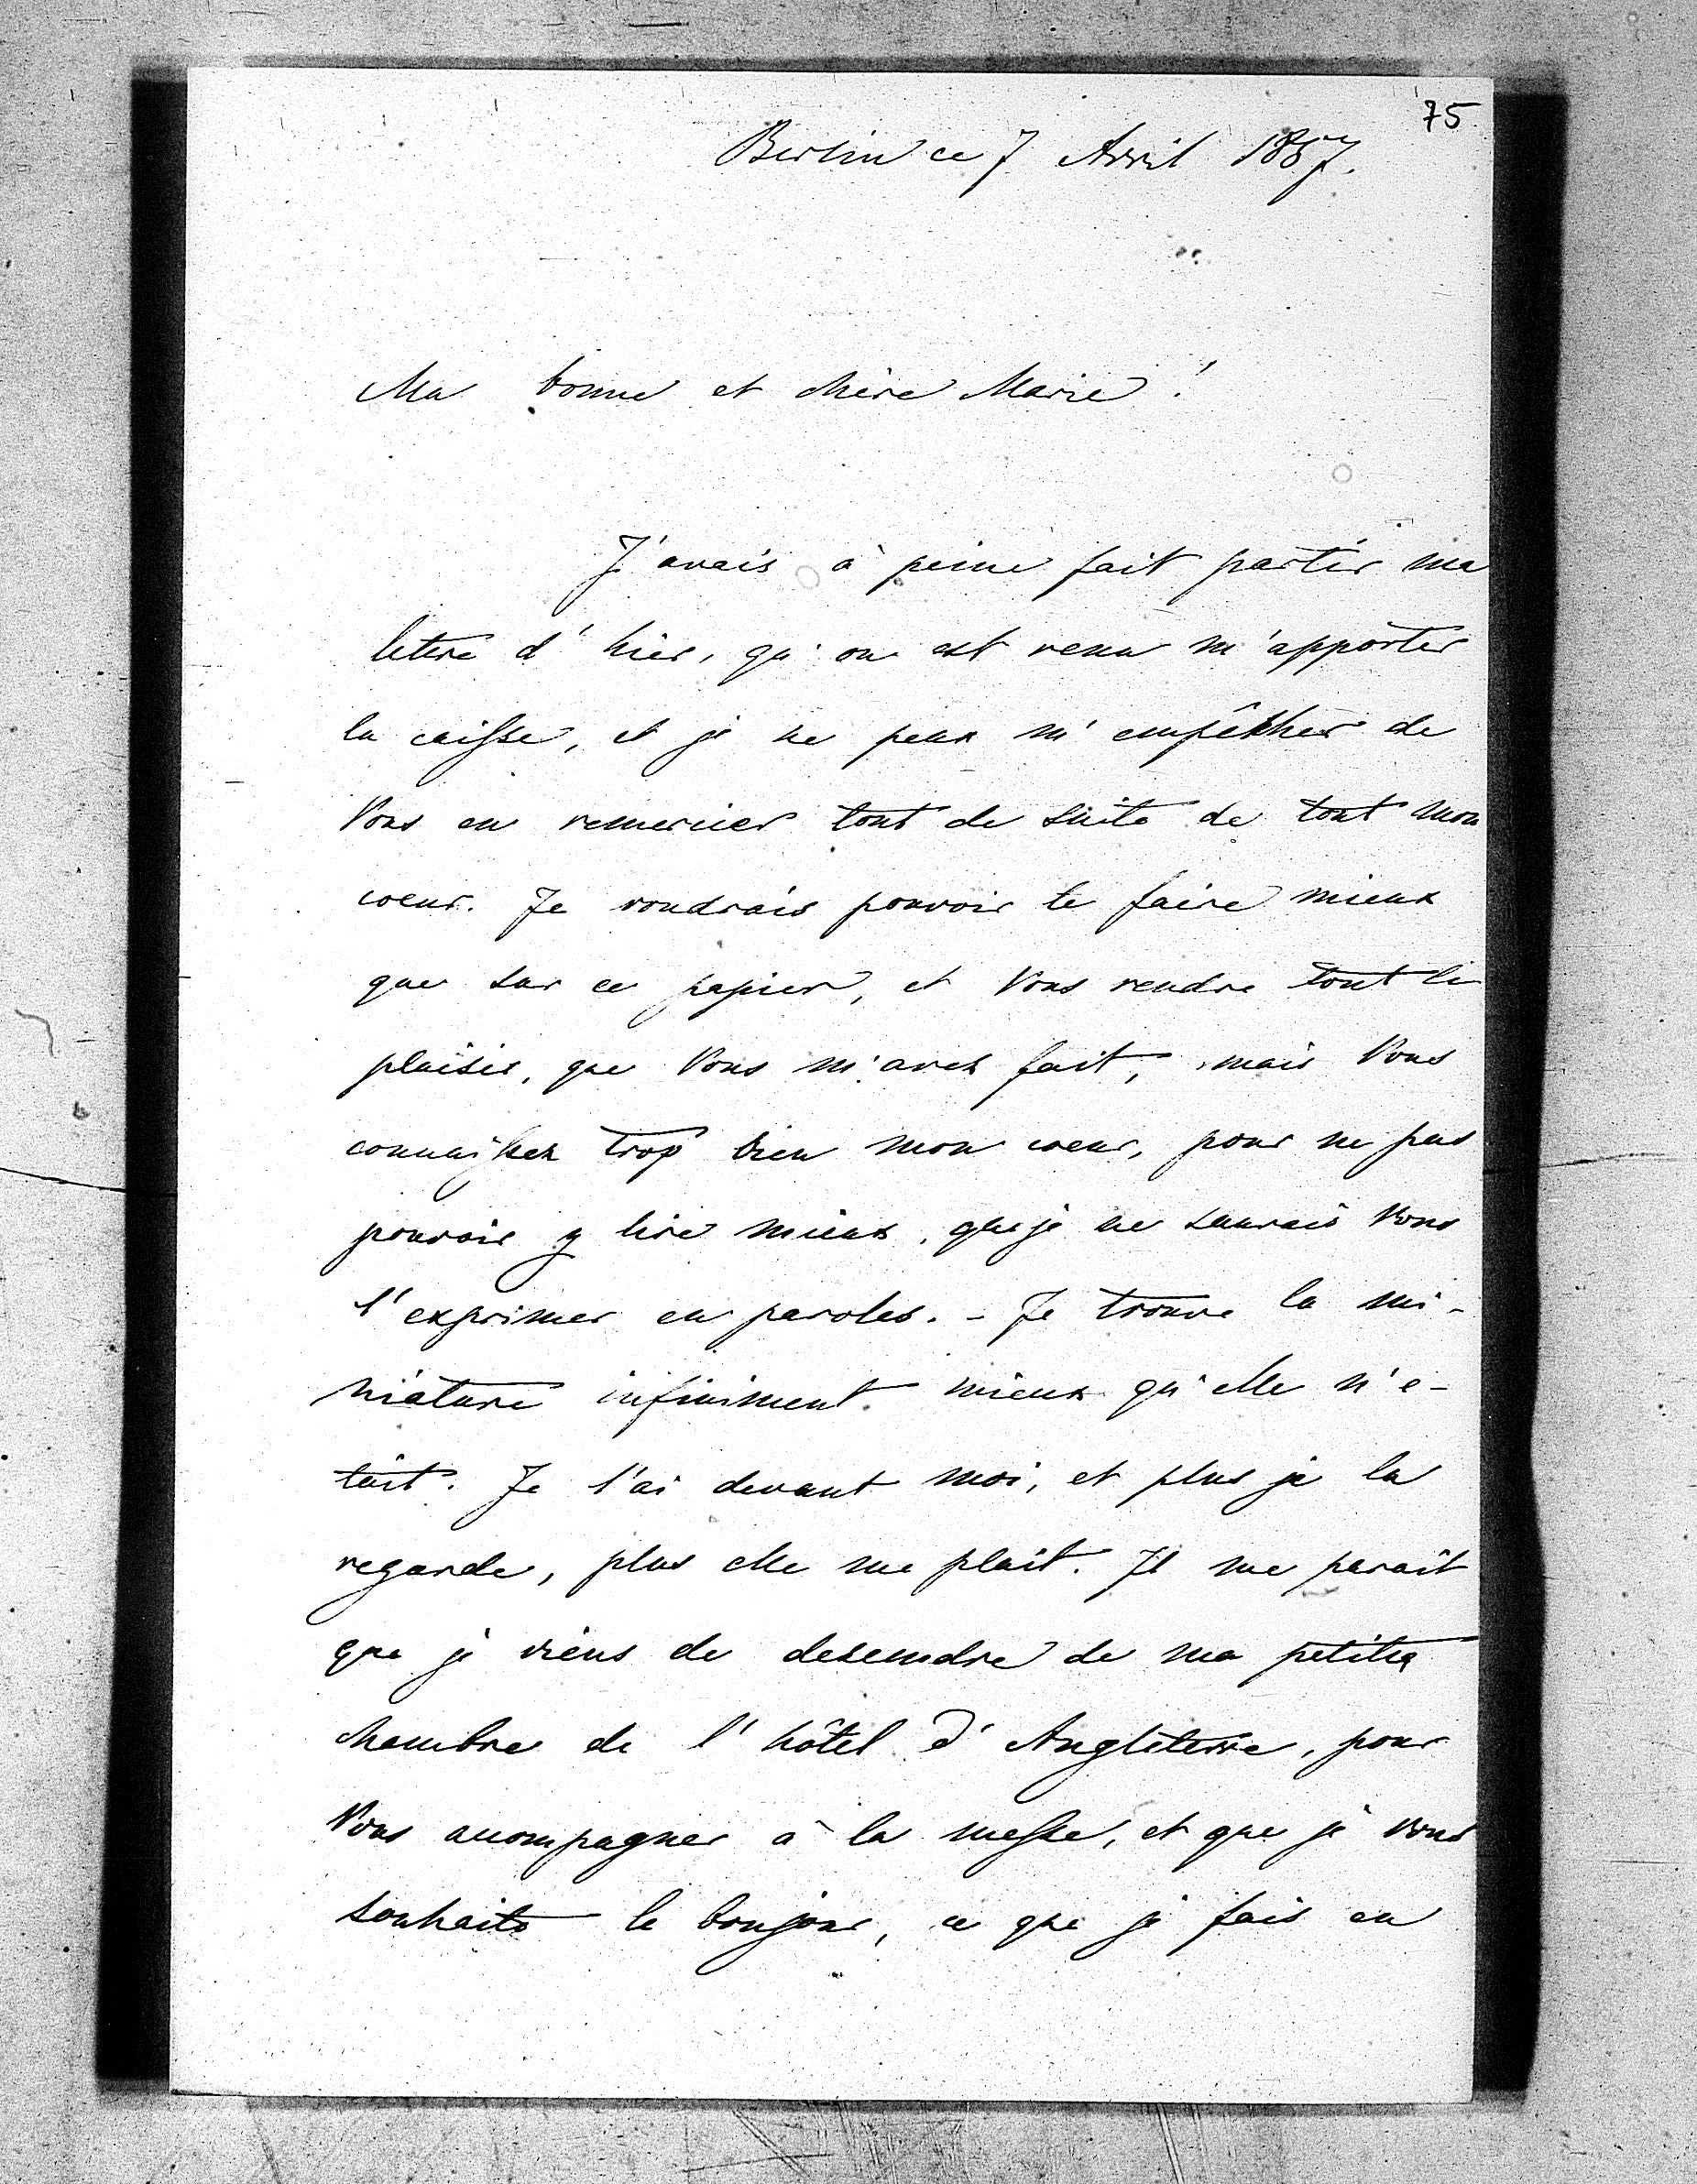 75
Berlin ce 7 Avril 1857.
Ma bonne et chère Marie!
J'avais à peine fait partir ma
letere d'hier, qu'on est venu m'apporter
la caisse, et je ne peux m'empêcher de
Vous en remercier tout de suite de tout mon
coeur. Je voudrais pouvoir le faire mieux
que sur ce papier, et Vous rendre tout le
plaisir, que Vous m'avez fait, mais Vous
connaissez trop bien mon coeur, pour ne pas
pouvoir y lire mieux, que je ne saurais Vous
l'exprimer en paroles. - Je trouve la mi-
niature infiniment mieux qu'elle n'e-
tait. Je l'ai devant moi, et plus je la
regarde, plus elle me plait. Il me parait
que je viens de desendre de ma petite
chambre de l'hôtel d'Angleterre, pour
Vous accompagner à la messe, et que je Vous
souhaite le bonjour, ce que je fais en